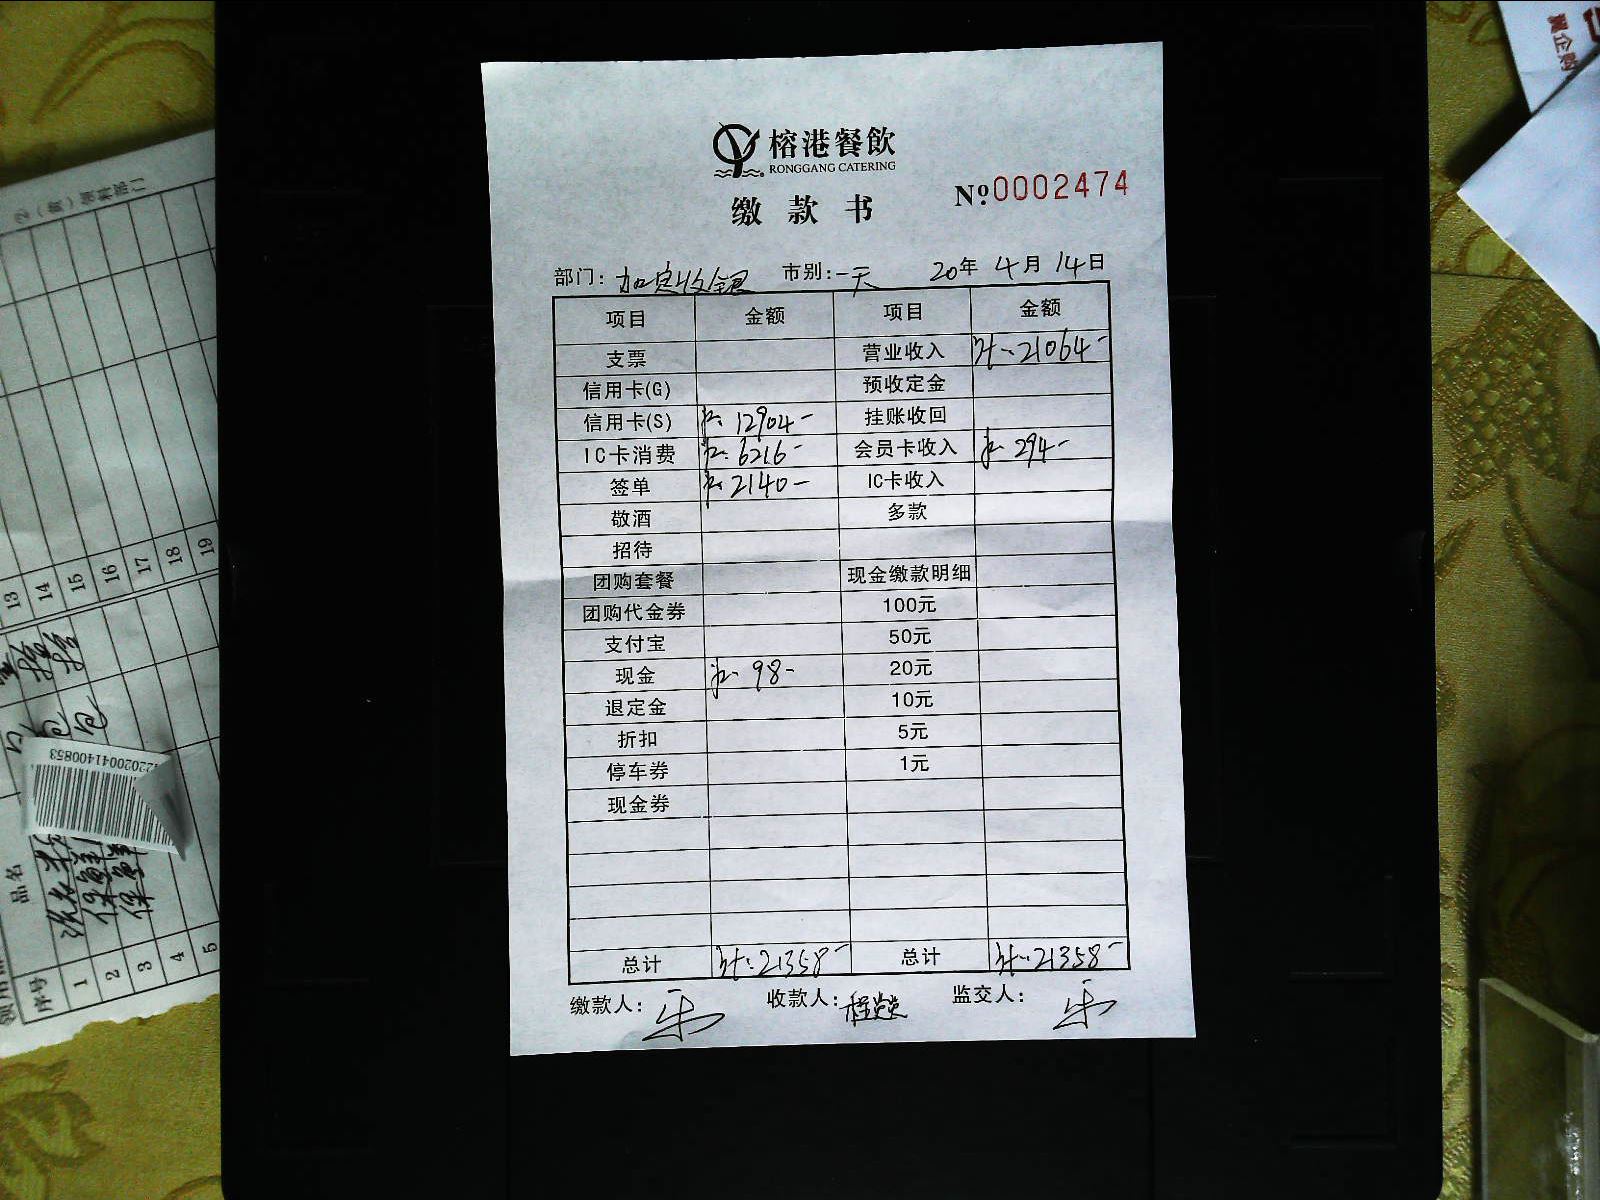 榕港餐飲
RONGGANG CATERING
缴款书
№0002474
部门: 加宾收银 市别: 一天 20年 4月 14日
项目 金额 项目 金额
支票 营业收入 21064-
信用卡(G) 预收定金
信用卡(S) 12904- 挂账收回
IC卡消费 6216- 会员卡收入 294-
签单 2140- IC卡收入
敬酒 多款
招待
团购套餐 现金缴款明细
团购代金券 100元
支付宝 50元
现金 98- 20元
退定金 10元
折扣 5元
停车券 1元
现金券
总计 21358- 总计 21358-
缴款人: 收款人: 监交人:
②
13 14 15 16 17 18 19
220200041400853
品名
保鲜
保鲜
序号 1 2 3 4 5